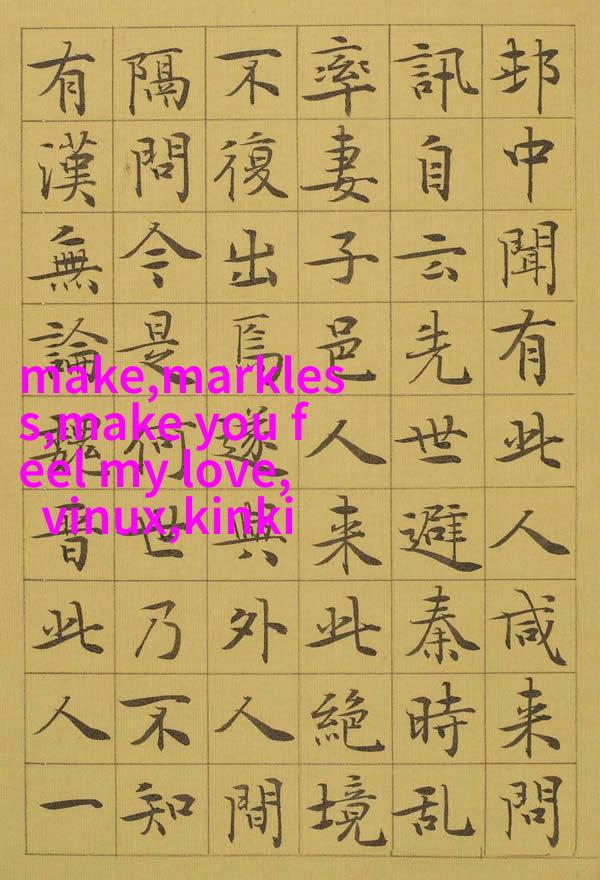 邨中聞有此人咸来問
訊自云先世避秦時乱
率妻子邑人来此絶境
不復出焉遂與外人間
隔問今是何世乃不知
有漢無論魏晋此人一
make,markles
s,make you f
eel my love,
vinux,kinki